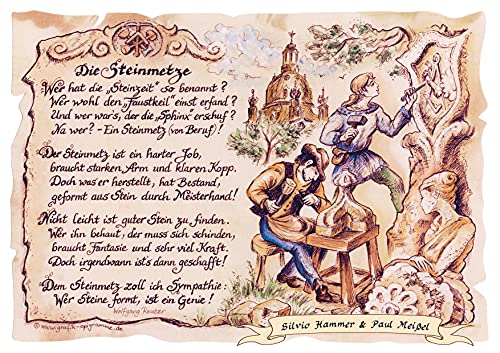 Die Steinmetze
Wer hat die „Steinzeit" so benannt?
Wer wohl den „Faustkeil" einst erfand?
Und wer war's, der die „Sphinx" erschuf?
Na wer? - Ein Steinmetz (von Beruf)!
Der Steinmetz ist ein harter Job,
braucht starken Arm und klaren Kopp.
Doch was er herstellt, hat Bestand,
geformt aus Stein durch Meisterhand!
Nicht leicht ist guter Stein zu finden.
Wer ihn behaut, der muss sich schinden,
braucht Fantasie und sehr viel Kraft.
Doch irgendwann ists dann geschafft!
Dem Steinmetz zoll ich Sympathie:
Wer Steine formt, ist ein Genie!
Wolfgang Reuter
© www.grafik-epigramme.de
Silvio Hammer & Paul Meißel